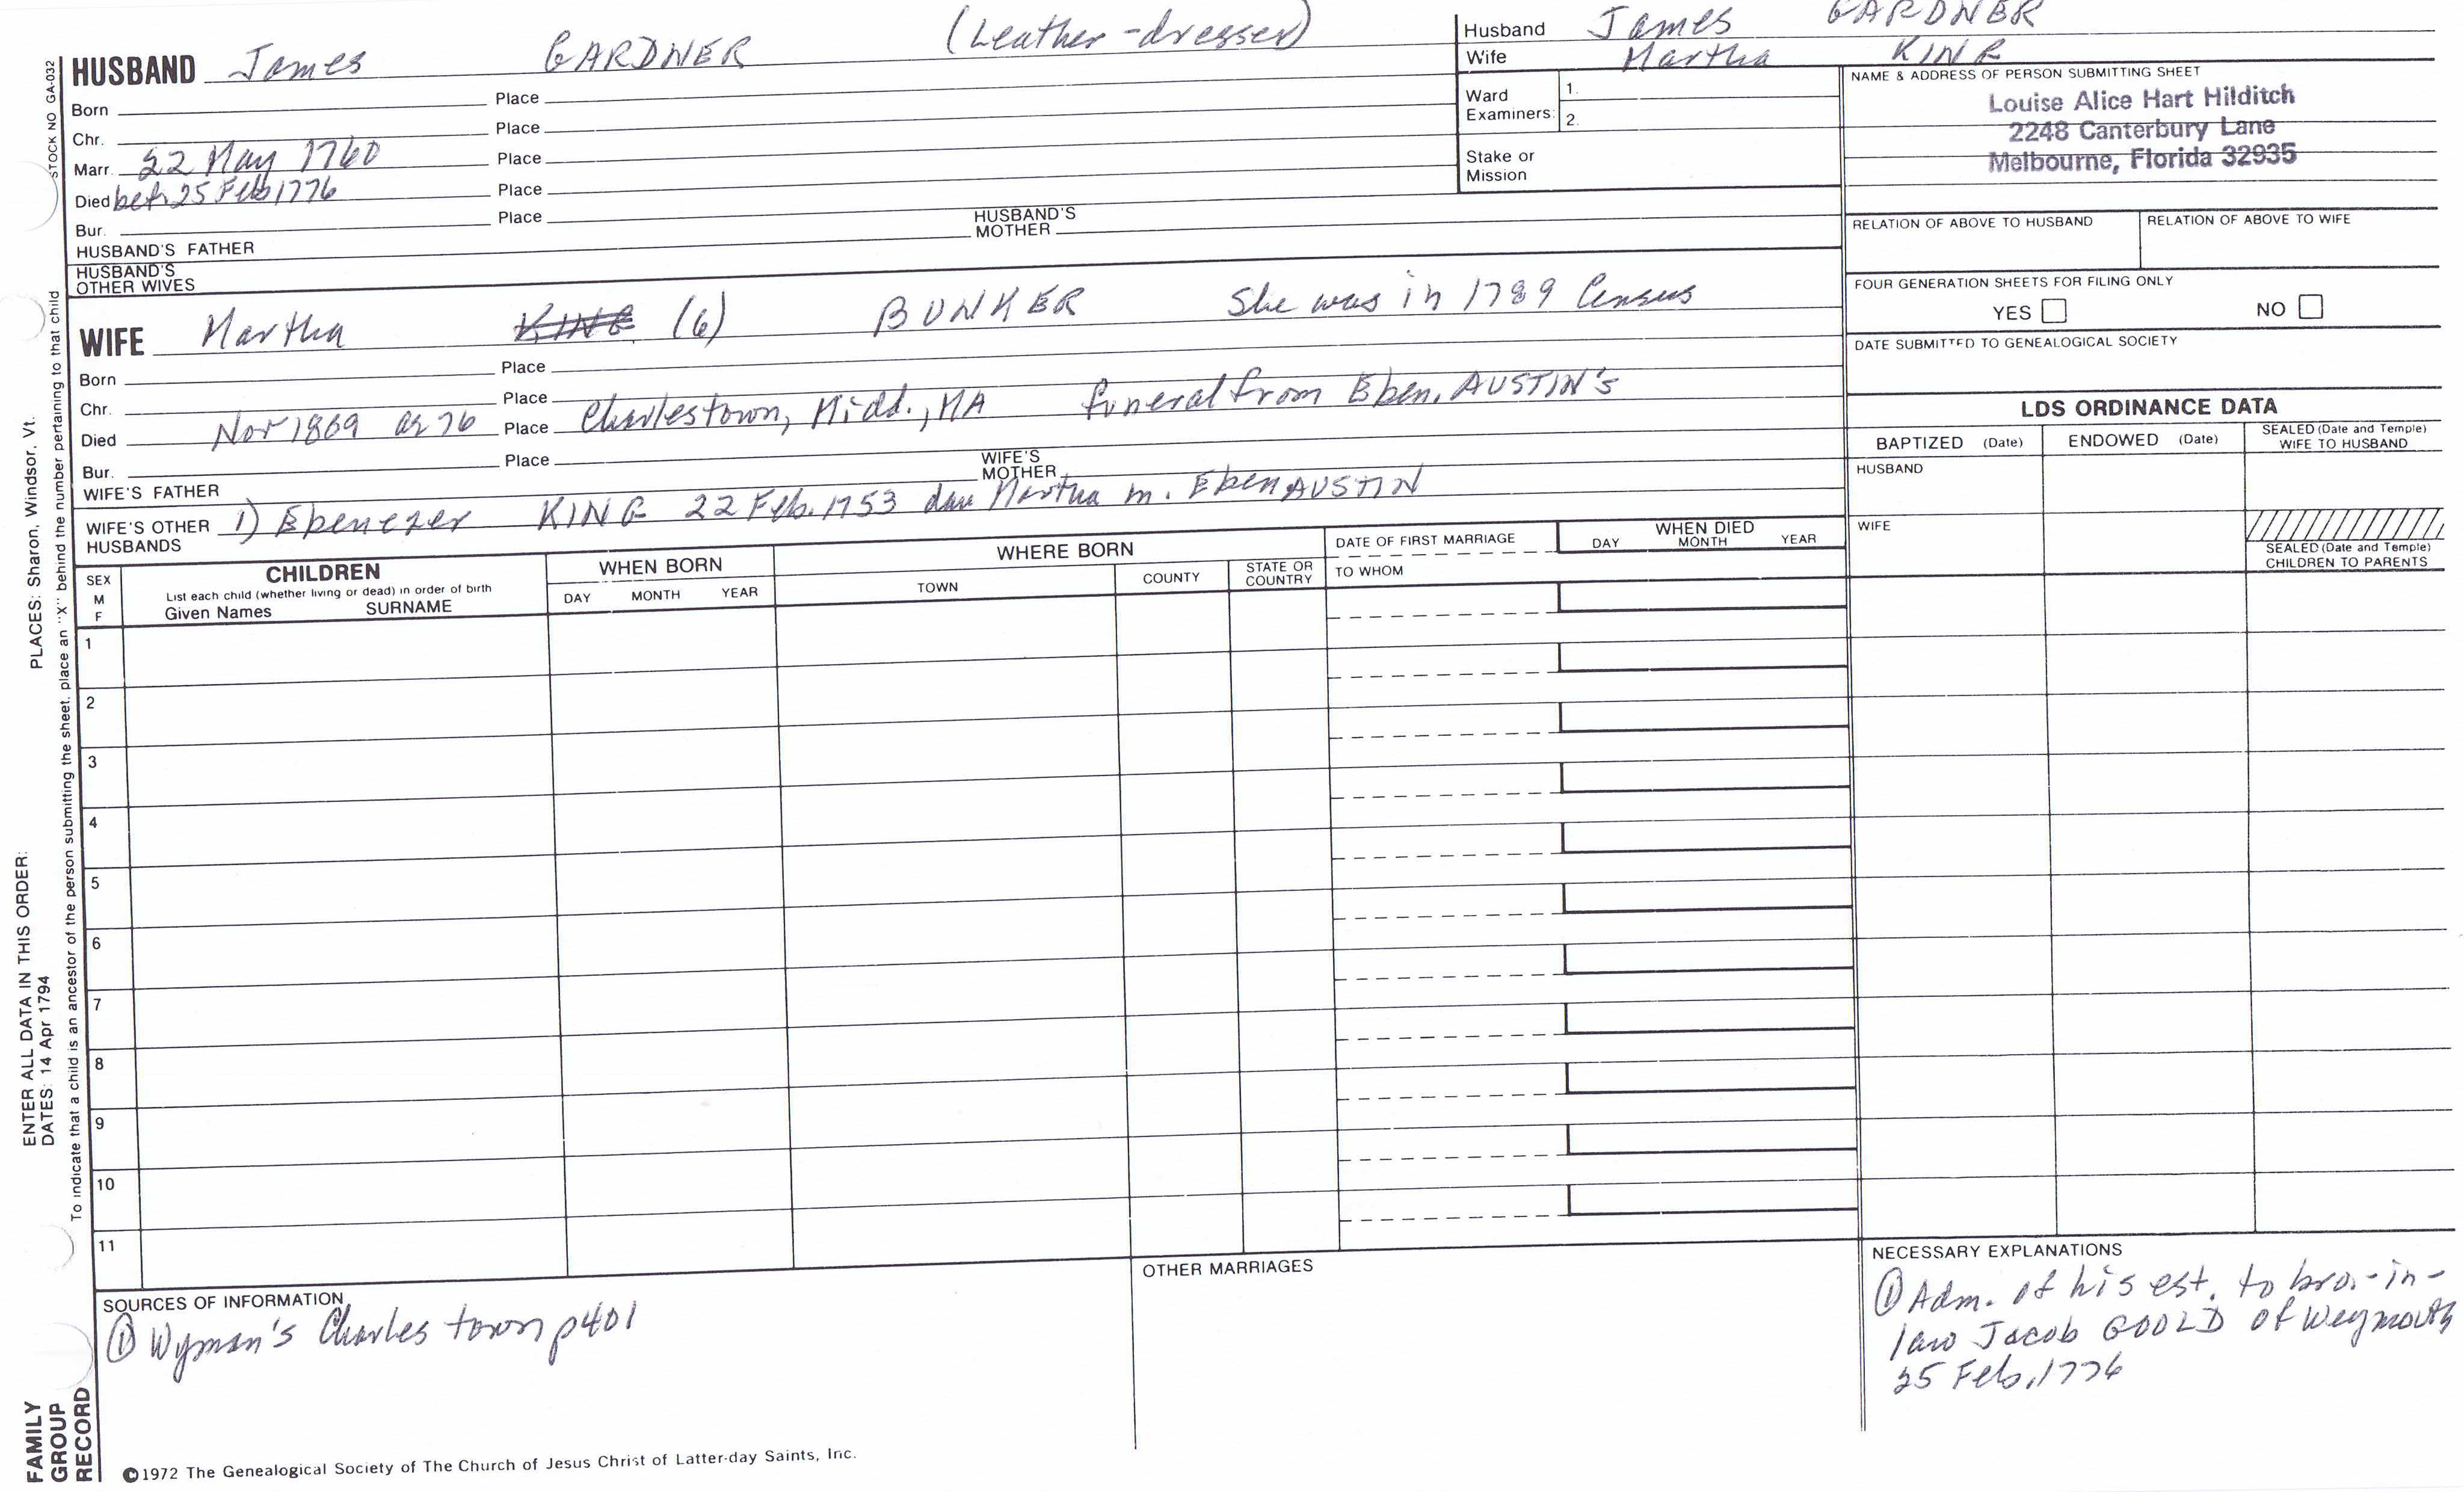 HUSBAND James GARDNER (Leather-dresser)
Born Place
Chr. Place
Marr. 22 May 1760 Place
Died bef. 25 Feb 1776 Place
Bur. Place
HUSBAND'S FATHER HUSBAND'S MOTHER
HUSBAND'S OTHER WIVES
Husband James GARDNER
Wife Martha KING
Ward Examiners: 1.
2.
Stake or Mission
NAME & ADDRESS OF PERSON SUBMITTING SHEET
Louise Alice Hart Hilditch
2248 Canterbury Lane
Melbourne, Florida 32935
RELATION OF ABOVE TO HUSBAND RELATION OF ABOVE TO WIFE
FOUR GENERATION SHEETS FOR FILING ONLY
YES NO
DATE SUBMITTED TO GENEALOGICAL SOCIETY
WIFE Martha KING (6) BUNKER She was in 1789 Census
Born Place
Chr. Place
Died Nov 1869 ae 76 Place Charlestown, Midd., MA funeral from Eben. AUSTIN's
Bur. Place
WIFE'S FATHER WIFE'S MOTHER
WIFE'S OTHER HUSBANDS 1) Ebenezer KING 22 Feb. 1753 dau Martha m. Eben AUSTIN
LDS ORDINANCE DATA
BAPTIZED (Date) ENDOWED (Date) SEALED (Date and Temple) WIFE TO HUSBAND
HUSBAND
WIFE
SEALED (Date and Temple) CHILDREN TO PARENTS
SEX M F
CHILDREN
List each child (whether living or dead) in order of birth
Given Names SURNAME
WHEN BORN
DAY MONTH YEAR
WHERE BORN
TOWN COUNTY STATE OR COUNTRY
DATE OF FIRST MARRIAGE
TO WHOM
WHEN DIED
DAY MONTH YEAR
1
2
3
4
5
6
7
8
9
10
11
SOURCES OF INFORMATION
① Wyman's Charlestown p401
OTHER MARRIAGES
NECESSARY EXPLANATIONS
① Adm. of his est. to bro.-in-
law Jacob GOOLD of Weymouth
25 Feb. 1776
©1972 The Genealogical Society of The Church of Jesus Christ of Latter-day Saints, Inc.
FAMILY GROUP RECORD
ENTER ALL DATA IN THIS ORDER:
DATES: 14 Apr 1794
PLACES: Sharon, Windsor, Vt.
To indicate that a child is an ancestor of the person submitting the sheet, place an "X" behind the number pertaining to that child
STOCK NO GA-032